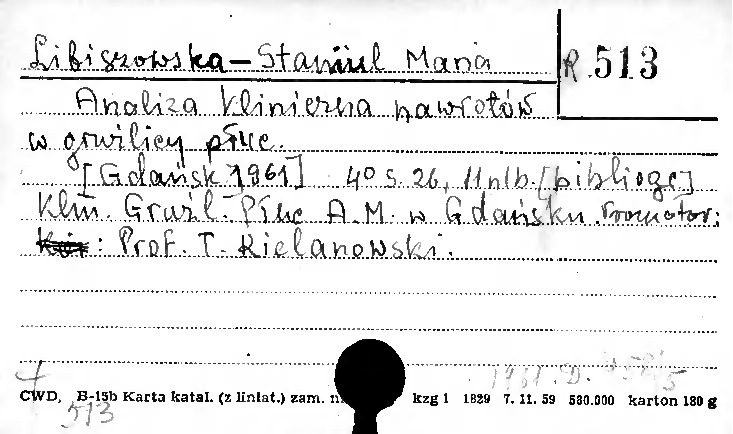 Libiszowska-Staniul Maria
R. 513
Analiza kliniczna nawrotów
w gruźlicy płuc.
[Gdańsk 1961] 4° s. 26, 11 nlb. [bibliogr]
Klin. Gruźl. Płuc A.M. w Gdańsku. Promotor:
: Prof. T. Kielanowski.
1961. D.
CWD, B-15b Karta katal. (z liniat.) zam. kzg 1 1829 7. 11. 59 580.000 karton 180 g
513